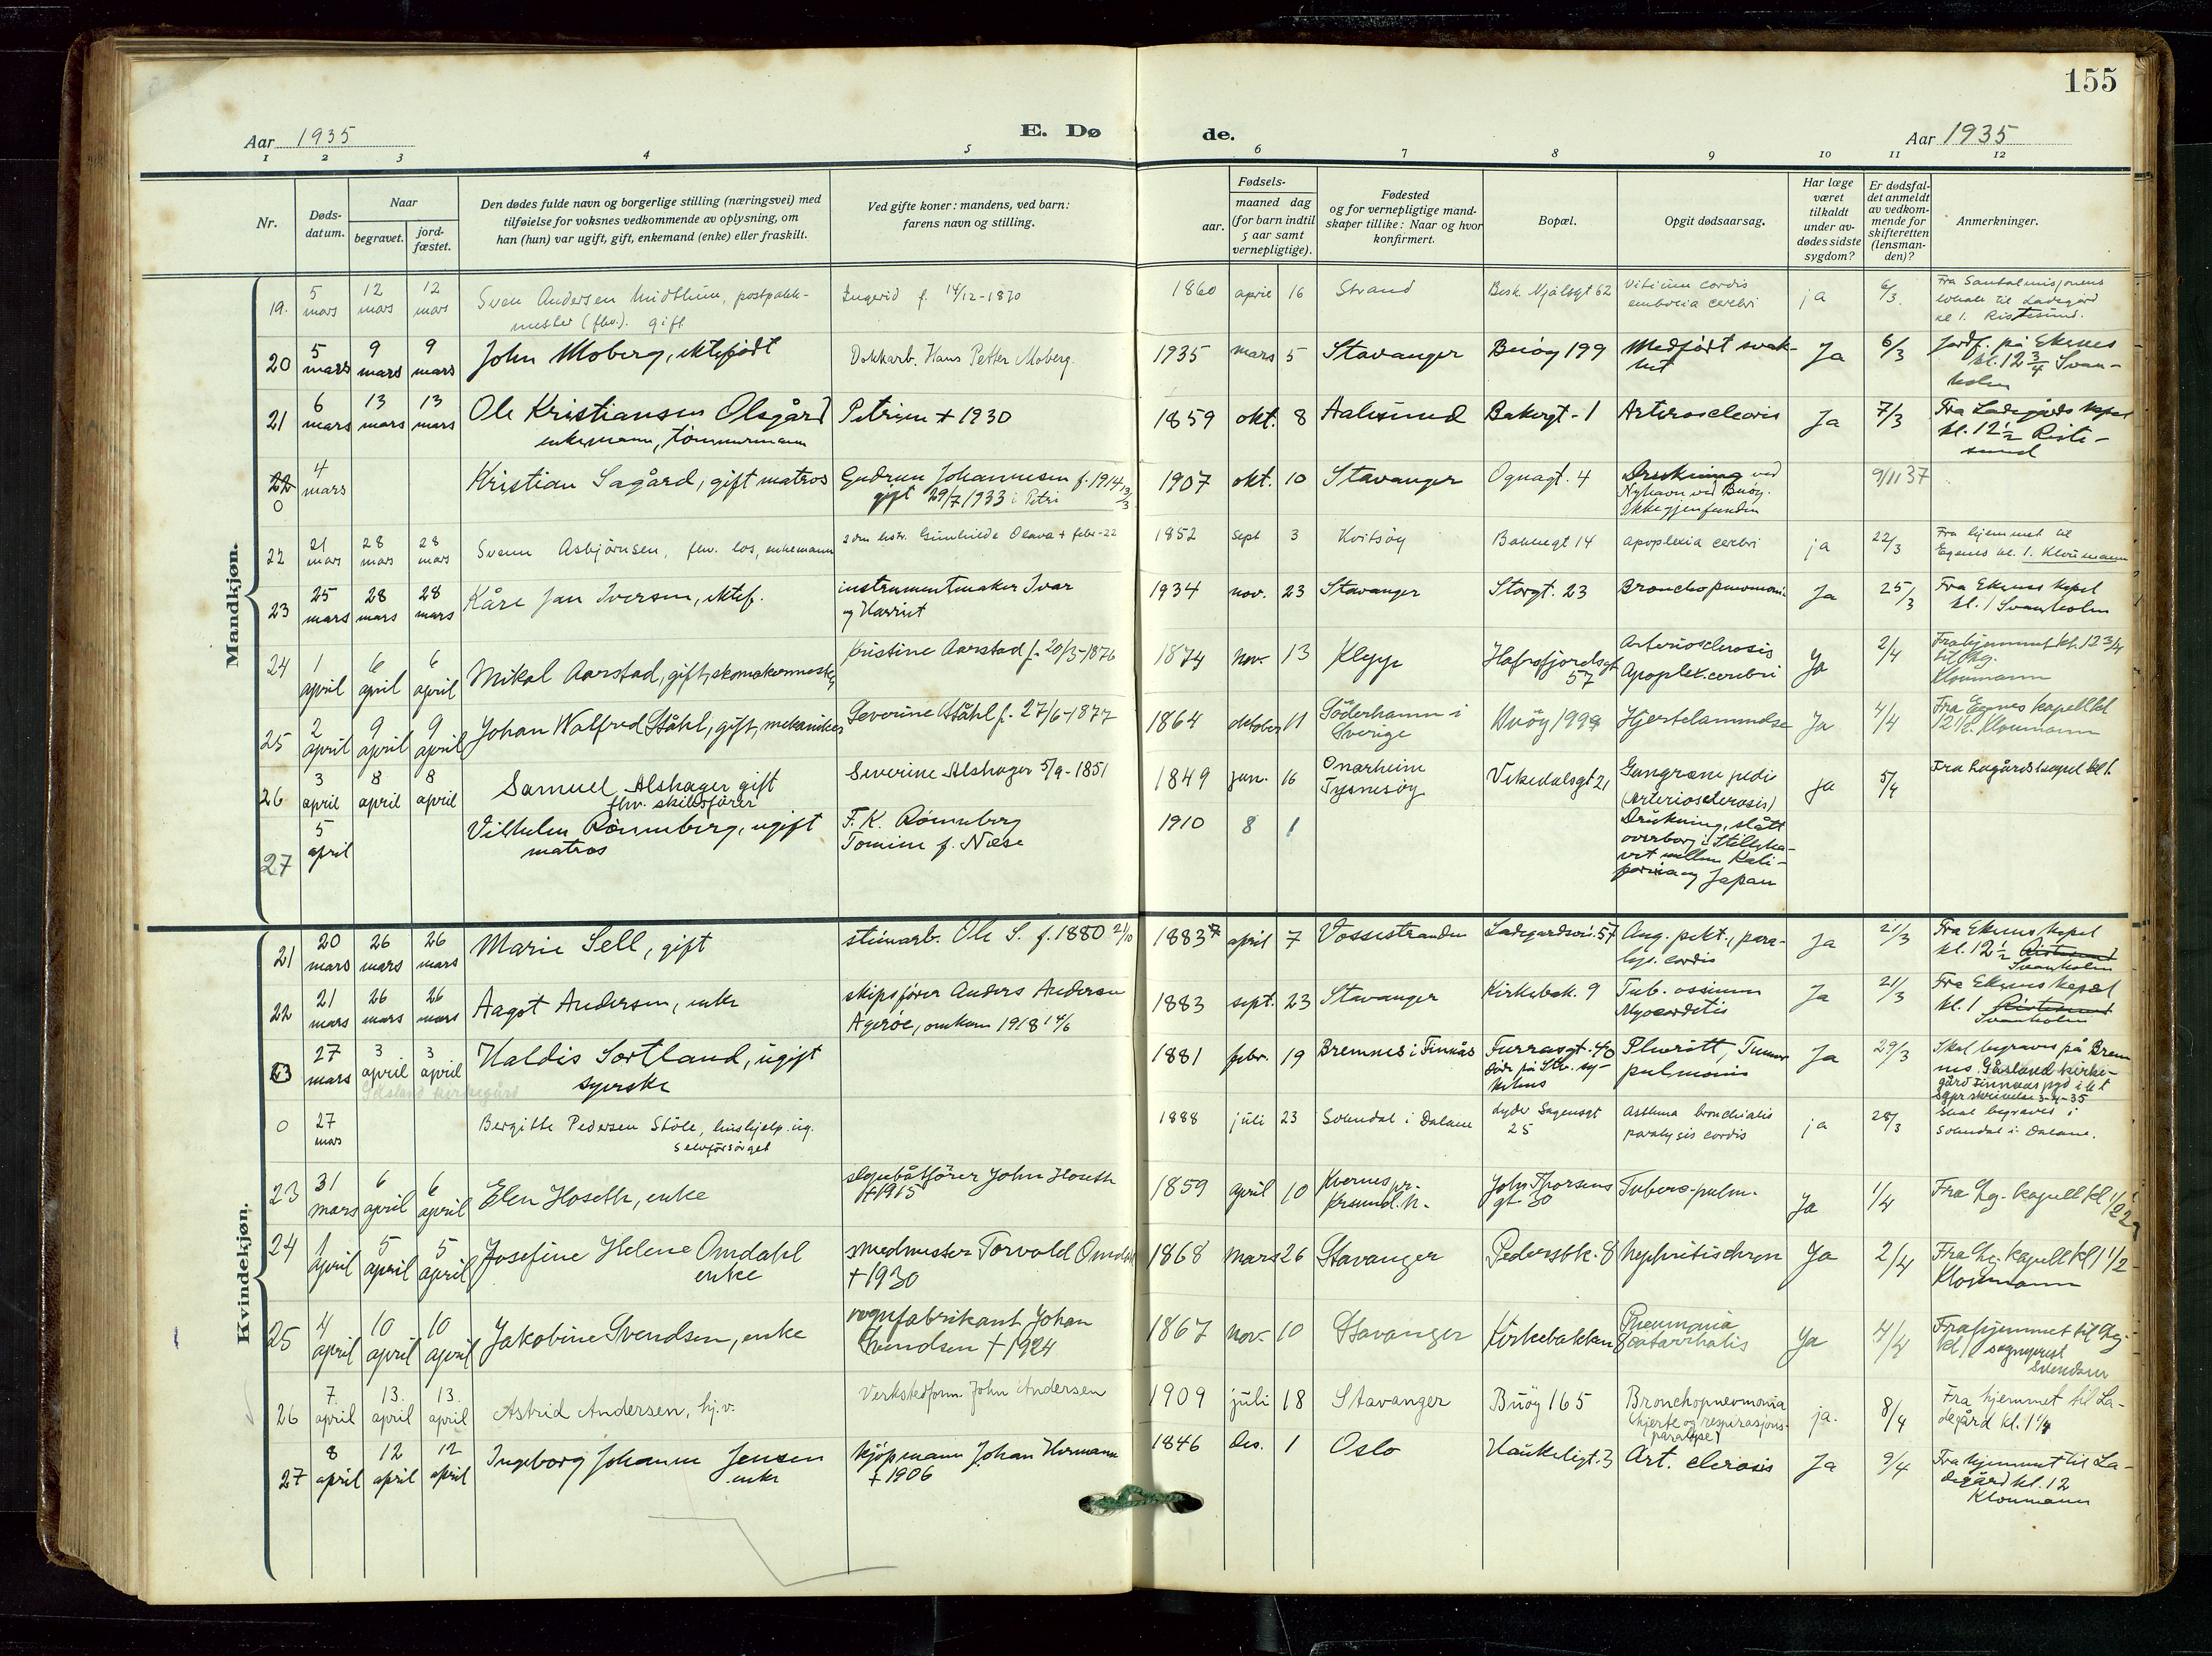 155
Aar 1935
E. Dø de.
Aar 1935
1 2 3 4 5 6 7 8 9 10 11 12
Nr.
Døds-
datum.
Naar
begravet.
jord-
fæstet.
Den dødes fulde navn og borgerlige stilling (næringsvei) med
tilføielse for voksnes vedkommende av oplysning, om
han (hun) var ugift, gift, enkemand (enke) eller fraskilt.
Ved gifte koner: mandens, ved barn:
farens navn og stilling.
Fødsels-
aar.
maaned dag
(for barn indtil
5 aar samt
vernepligtige).
Fødested
og for vernepligtige mand-
skaper tillike: Naar og hvor
konfirmert.
Bopæl.
Opgit dødsaarsag.
Har læge
været
tilkaldt
under av-
dødes sidste
sygdom?
Er dødsfal-
det anmeldt
av vedkom-
mende for
skifteretten
(lensman-
den)?
Anmerkninger.
Mandkjøn.
19. 5 mars 12 mars 12 mars Sven Andersen Midthun, postpakk-
mester (fhv.). gift
Ingerid f. 14/12-1870
1860 april 16 Strand Besk. Njålsgt 62 Vitium cordis
embolia cerebri
ja 6/3. Fra Santalmisjonens
lokale til Ladegård
kl 1. Ristesund.
20 5 mars 9 mars 9 mars John Moberg, ektefødt
Dokkarb. Hans Petter Moberg.
1935 mars 5 Stavanger Buøy 199 Medfødt svak-
het
Ja 6/3 Jordf. på Ekenes
kl. 12 3/4 Svan-
holm
21 6 mars 13 mars 13 mars Ole Kristiansen Olsgård
enkemann, tømmermann
Petrine + 1930
1859 okt. 8 Aalesund Bakergt-1 Arteriosclerosis
Ja 7/3 Fra Ladegårds kapel
kl. 12 1/2 Riste-
sund
22 0 4 mars Kristian Sagård, gift matros
Gudrun Johannesen f. 1914 13/3
gift 29/7 1933 i Petri
1907 okt. 10 Stavanger Ognagt. 4 Drukning ved
Nyhavn ved Buøy.
Ikke gjenfunden
9/11 37
22 21 mars 28 mars 28 mars Svenn Asbjørnsen, fhv. los, enkemann
2den hstr. Gunhilde Olava + febr-22
1852 sept 3 Kvitsøy Bakkegt 14 apoplexia cerebri
ja 22/3 Fra hjemmet til
Egenes kl. 1. Kloumann
23 25 mars 28 mars 28 mars Kåre Jan Iversen, ektef.
instrumentmaker Ivar
og Harriet
1934 nov. 23 Stavanger Storgt. 23 Bronchopneumoni.
Ja 25/3 Fra Ekenes kapel
kl. 1 Svanholm
24 1 april 6 april 6 april Mikal Aarstad, gift, skomakermester
Kristine Aarstad f. 20/3-1876
1874 nov. 13 Klepp Hafrsfjordsgt
57
Arteriosclerosis
Apoplex. cerebri
Ja 2/4 Fra hjemmet kl. 12 3/4
til Lg.
Kloumann
25 2 april 9 april 9 april Johan Walfred Ståhl, gift, mekaniker
Severine Ståhl f. 27/6-1877
1864 oktober 11 Söderhamn i
Sverige
Buøy 199a Hjertelammelse
Ja 4/4 Fra Egenes kapell kl
12 1/2. Kloumann
26 3 april 8 april 8 april Samuel Alshager gift
fhv. skibsfører
Severine Alshager 5/9-1851
1849 jan. 16 Onarheim
Tysnesøy
Vikedalsgt 21 Gangræne pedis
(Arteriosclerosis)
ja 5/4 Fra Lagårds kapel kl 1.
27 5 april Vilhelm Rønneberg, ugift
matros
F. K. Rønneberg
Tomine f. Næse
1910 8 1 Drukning, slått
overbord i Stilleha-
vet mellem Kali-
fornia og Japan
Kvindekjøn.
21 20 mars 26 mars 26 mars Marie Sell, gift
stenarb. Ole S. f. 1880 2/10
1883 april 7 Vossestranden Ladegardsvei. 57 Ang. pekt., para-
lys. cordis
Ja 21/3 Fra Ekenes kapel
kl. 12 1/2 Ristesund
Svanholm
22 21 mars 26 mars 26 mars Aagot Andersen, enke
skipsfører Anders Andersen
Agerøe, omkom 1918 14/6
1883 sept. 23 Stavanger Kirkebak. 9 Tub. ossium
Myocarditis
Ja 21/3 Fra Ekenes kapel
kl. 1 Ristesund
Svanholm
23 27 mars 3 april 3 april Haldis Sortland, ugift
syerske
Gåsland kirkegård
1881 febr. 19 Bremnes i Finnås Furrasgt. 40
døde på Stv. sy-
kehus
Pleuritt, Tumor
pulmonis
Ja 29/3 Skal begraves på Brem
nes. Gåsland kirke-
gård Finnaas pgd i flt
Sgpr skrivelse 3-4-35
0 27 mars Bergitte Pedersen Støle, hushjelp. ug.
selvforsørget
1888 juli 23 Sokndal i Dalane dyder Sagensgt
25
Asthma bronchialis
paralysis cordis
ja 28/3 Skal begraves i
Sokndal i Dalane.
23 31 mars 6 april 6 april Elen Hoseth, enke
slepebåtfører John Hoseth
+ 1915
1859 april 10 Kvernes pr.
Krsund. N.
John Thorsens
gt. 30
Tuberc-pulm.
Ja 1/4 Fra Lg. kapell kl 1/2 2
24 1 april 5 april 5 april Josefine Helene Omdahl
enke
smedmester Torvald Omdahl
+ 1930
1868 mars 26 Stavanger Pedersbk. 8 Nephritis chron
Ja 2/4 Fra Lg. kapell kl 1 1/2
Kloumann
25 4 april 10 april 10 april Jakobine Svendsen, enke
vognfabrikant Johan
Svendsen + 1924
1867 nov. 10 Stavanger Kirkebakken 8 Pneumonia
catarrhalis
Ja 4/4 Fra hjemmet til Lg.
kl 1 sogneprest
Svendsen
26 7. april 13. april 13. april Astrid Andersen, hj.v.
Verkstedform. John Andersen
1909 juli 18 Stavanger Buøy 165 Bronchopneumonia
(hjerte og respirasjons-
paralyse)
ja. 8/4 Fra hjemmet til La-
degård kl. 1 1/4
27 8 april 12 april 12 april Ingeborg Johanne Jensen
enke
kjøpmann Johan Hermann
+ 1906
1846 des. 1 Oslo Haukeligt. 3 Art. clerosis
Ja 9/4 Fra hjemmet til La-
degård kl. 12
Kloumann